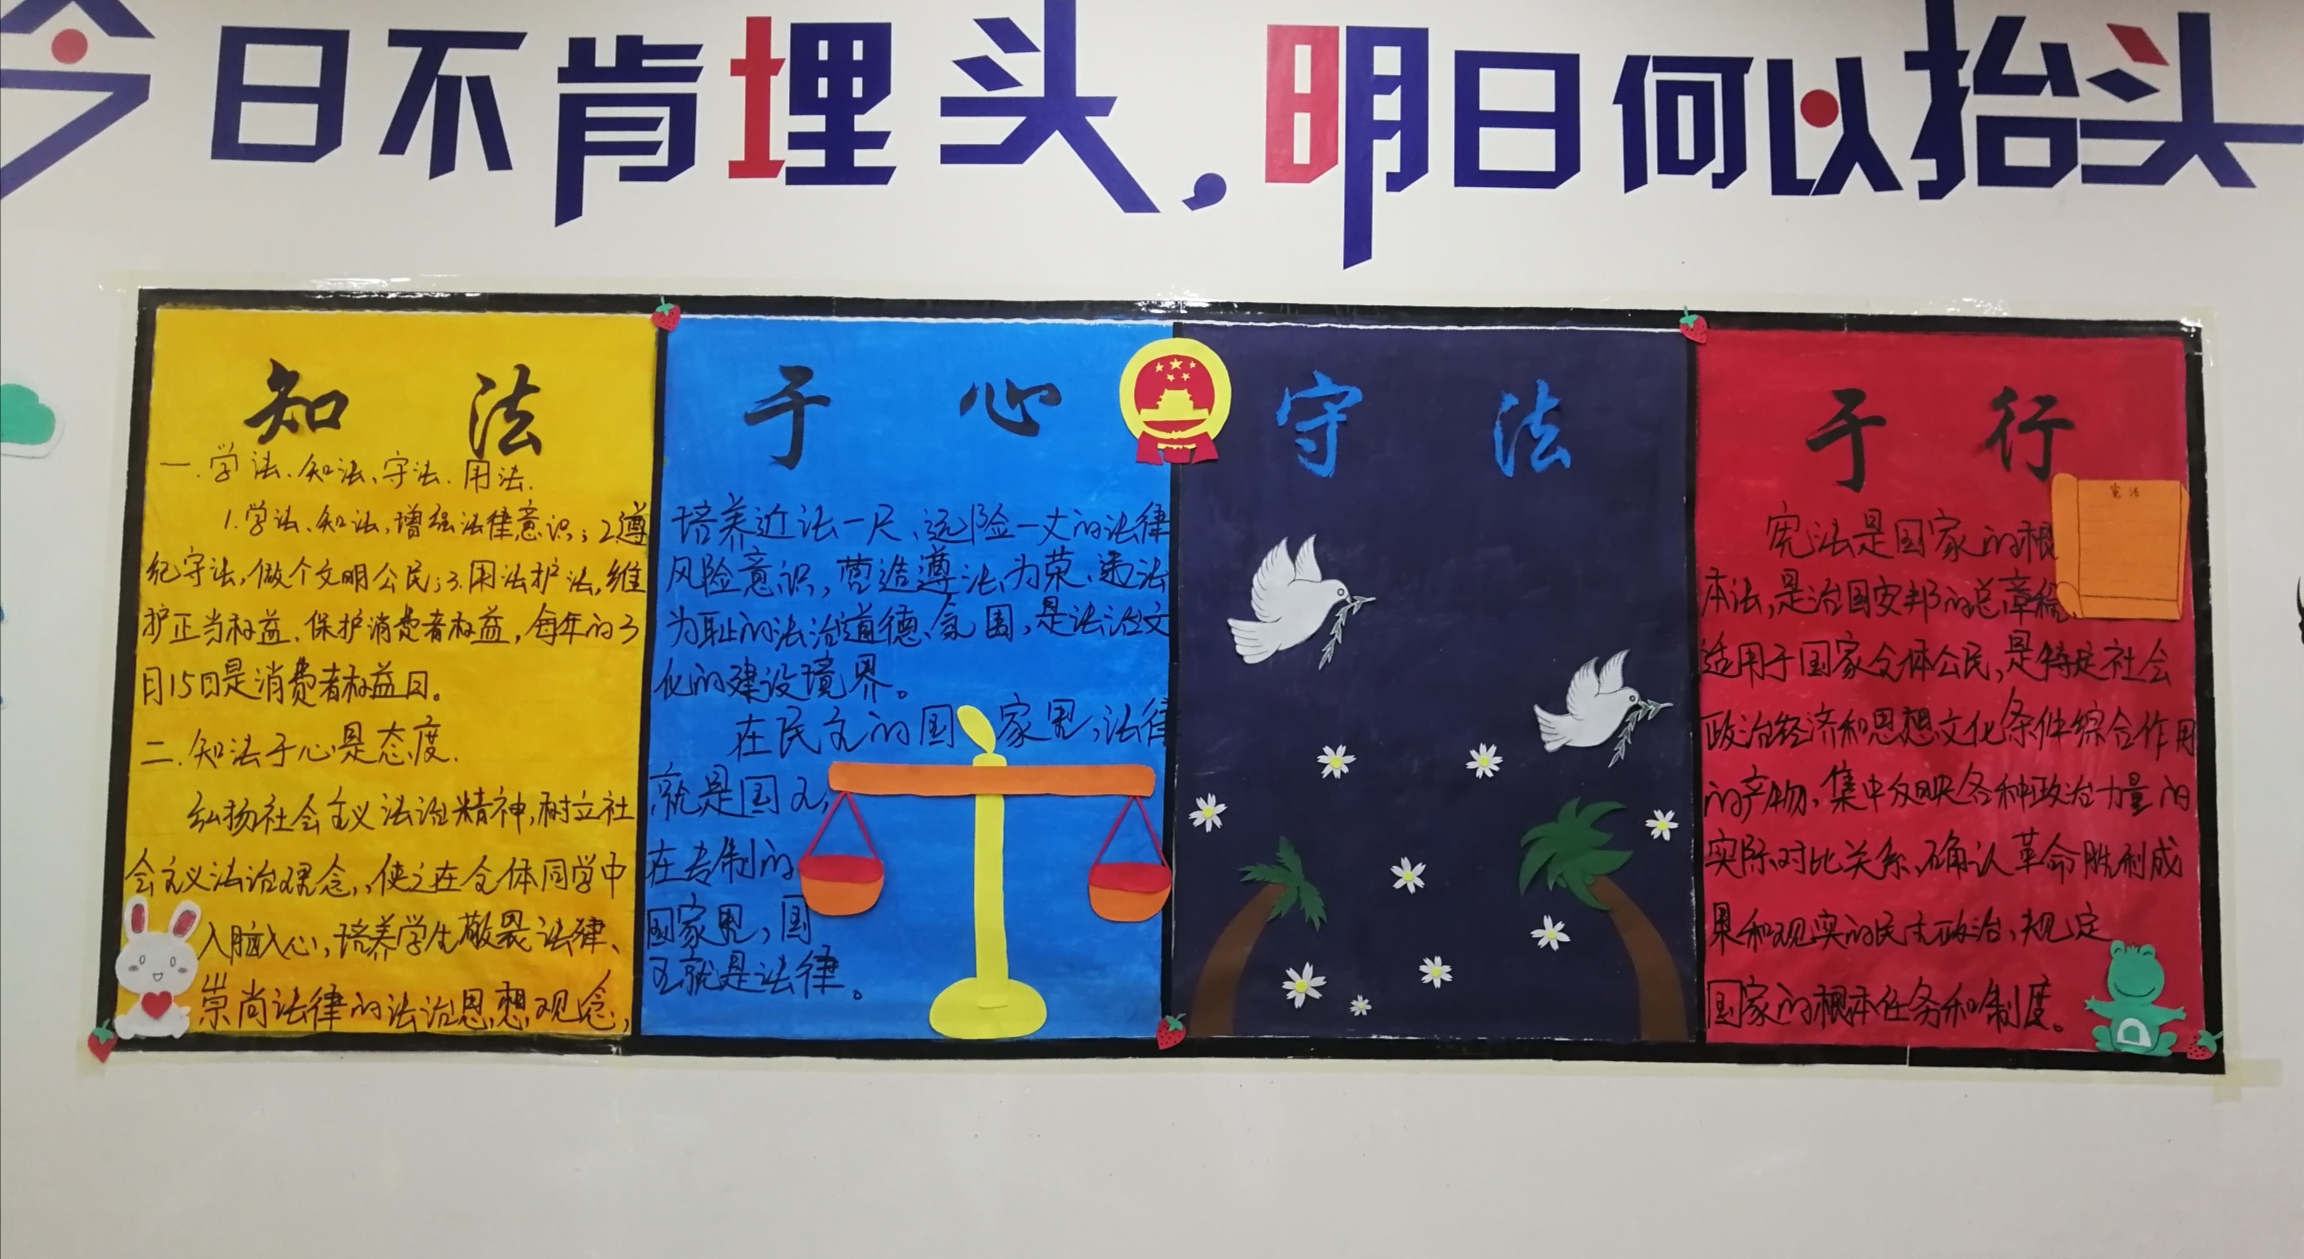 今日不肯埋头，明日何以抬头
知法于心守法于行
一.学法、知法、守法、用法.
1.学法、知法,增强法律意识；2.遵
纪守法,做个文明公民；3.用法护法,维
护正当权益、保护消费者权益，每年的3
月15日是消费者权益日。
二.知法于心是态度.
弘扬社会主义法治精神,树立社
会主义法治观念,,使之在全体同学中
入脑入心,培养学生敬畏法律、
崇尚法律的法治思想观念,
培养近法一尺、远险一丈的法律
风险意识，营造遵法为荣、违法
为耻的法治道德、氛围，是法治文
化的建设境界。
在民主的国家里,法律
就是国王,
在专制的
国家里，国
王就是法律。
宪法
宪法是国家的根
本法,是治国安邦的总章程
适用于国家全体公民,是特定社会
政治经济和思想文化条件综合作用
的产物,集中反映各种政治力量的
实际对比关系、确认革命胜利成
果和现实的民主政治,规定
国家的根本任务和制度。